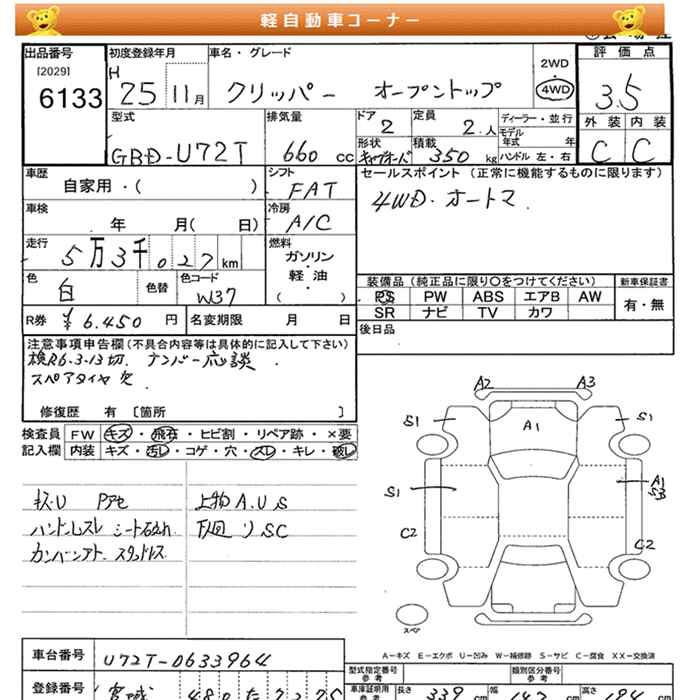 軽自動車コーナー
出品番号 [2029] 6133
初度登録年月 H 25 11月
車名・グレード クリッパー オープントップ
2WD ・ 4WD
評価点 3.5
外装 C 内装 C
型式 GBD-U72T
排気量 660 cc
ドア 2
定員 2.人
ディーラー・並行
モデル年式 年
形状
積載 350 kg
ハンドル 左・右
車歴 自家用・( )
シフト FAT
セールスポイント (正常に機能するものに限ります)
4WD.オートマ.
車検 年 月( 日)
冷房 A/C
走行 5万3千027km
燃料 ガソリン・軽・油・( )
色 白 色替 色コード W37
装備品(純正品に限り○をつけてください)
PS PW ABS エアB AW
SR ナビ TV カワ
新車保証書 有・無
R券 ¥6.450 円
名変期限 月 日
後日品
注意事項申告欄(不具合内容等は具体的に記入して下さい)
検R6.3-13切. ナンバー応談.
スペアタイヤ欠.
修復歴 有 [箇所 ]
検査員記入欄
FW キズ・飛石・ヒビ割・リペア跡・×要
内装 キズ・汚レ・コゲ・穴・スレ・キレ・破レ
キズ.U Pアセ 上物A.U.S
ハンドルスレ シート 下廻リSC
スタッドレス
A2 A3
S1 A1 S1
S1 A1 S3
C2 C2
スペア
A-キズ E-エクボ U-凹み W-補修跡 S-サビ C-腐食 XX-交換済
車台番号 U72T-0633964
登録番号 宮城 480
型式指定番号 参考
類別区分番号 参考
車庫証明用 参考 長さ 339 cm 幅 147 cm 高さ 184 cm